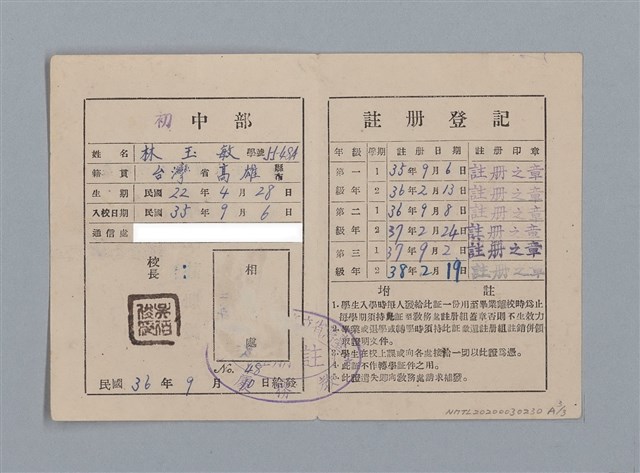 初中部
姓名 林玉敏 學號
籍貫 台灣省高雄縣市
生期 民國22年4月28日
入校日期 民國35年9月6日
通信處
校長:
相
處
No. 48
民國36年9月10日給發
註册登記
年級 學期 註册日期 註册印章
第一 1 35年9月6日 註册之章
級年 2 36年2月13日 註册之章
第二 1 36年9月8日 註册之章
級年 2 37年2月24日 註册之章
第三 1 37年9月2日 註册之章
級年 2 38年2月19日 註册之章
附註
1·學生入學時每人發給此証一份用至畢業離校時為止
每學期須持此証至教務處註册組蓋章否則不生效力
2·畢業或退學或轉學時須持此証繳還註册組註銷併領
取證明文件。
3·學生在校上課或向各處接給一切以此證為憑。
4·此證不作轉學証件之用。
5·此證遺失即向教務處請求補發。
NMTL20200030230 A 3/3